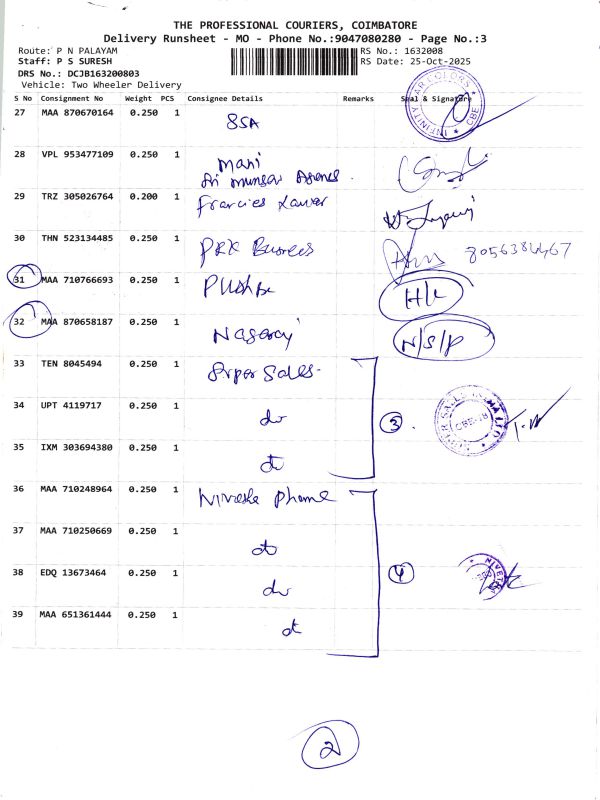 THE PROFESSIONAL COURIERS, COIMBATORE
Delivery Runsheet - MO - Phone No.:9047080280 - Page No.:3
Route: P N PALAYAM
RS No.: 1632008
Staff: P S SURESH
RS Date: 25-Oct-2025
DRS No.: DCJB163200803
Vehicle: Two Wheeler Delivery
S No Consignment No Weight PCS Consignee Details Remarks Seal & Signature
27 MAA 870670164 0.250 1 SSA
28 VPL 953477109 0.250 1 Mani
Sri
29 TRZ 305026764 0.200 1
30 THN 523134485 0.250 1 PRK 8056384467
31 MAA 710766693 0.250 1 H/L
32 MAA 870658187 0.250 1 Nagaraj N/S/P
33 TEN 8045494 0.250 1 Super Sales
34 UPT 4119717 0.250 1 do 3
35 IXM 303694380 0.250 1 do
36 MAA 710248964 0.250 1
37 MAA 710250669 0.250 1 do
38 EDQ 13673464 0.250 1 do 4
39 MAA 651361444 0.250 1 do
2